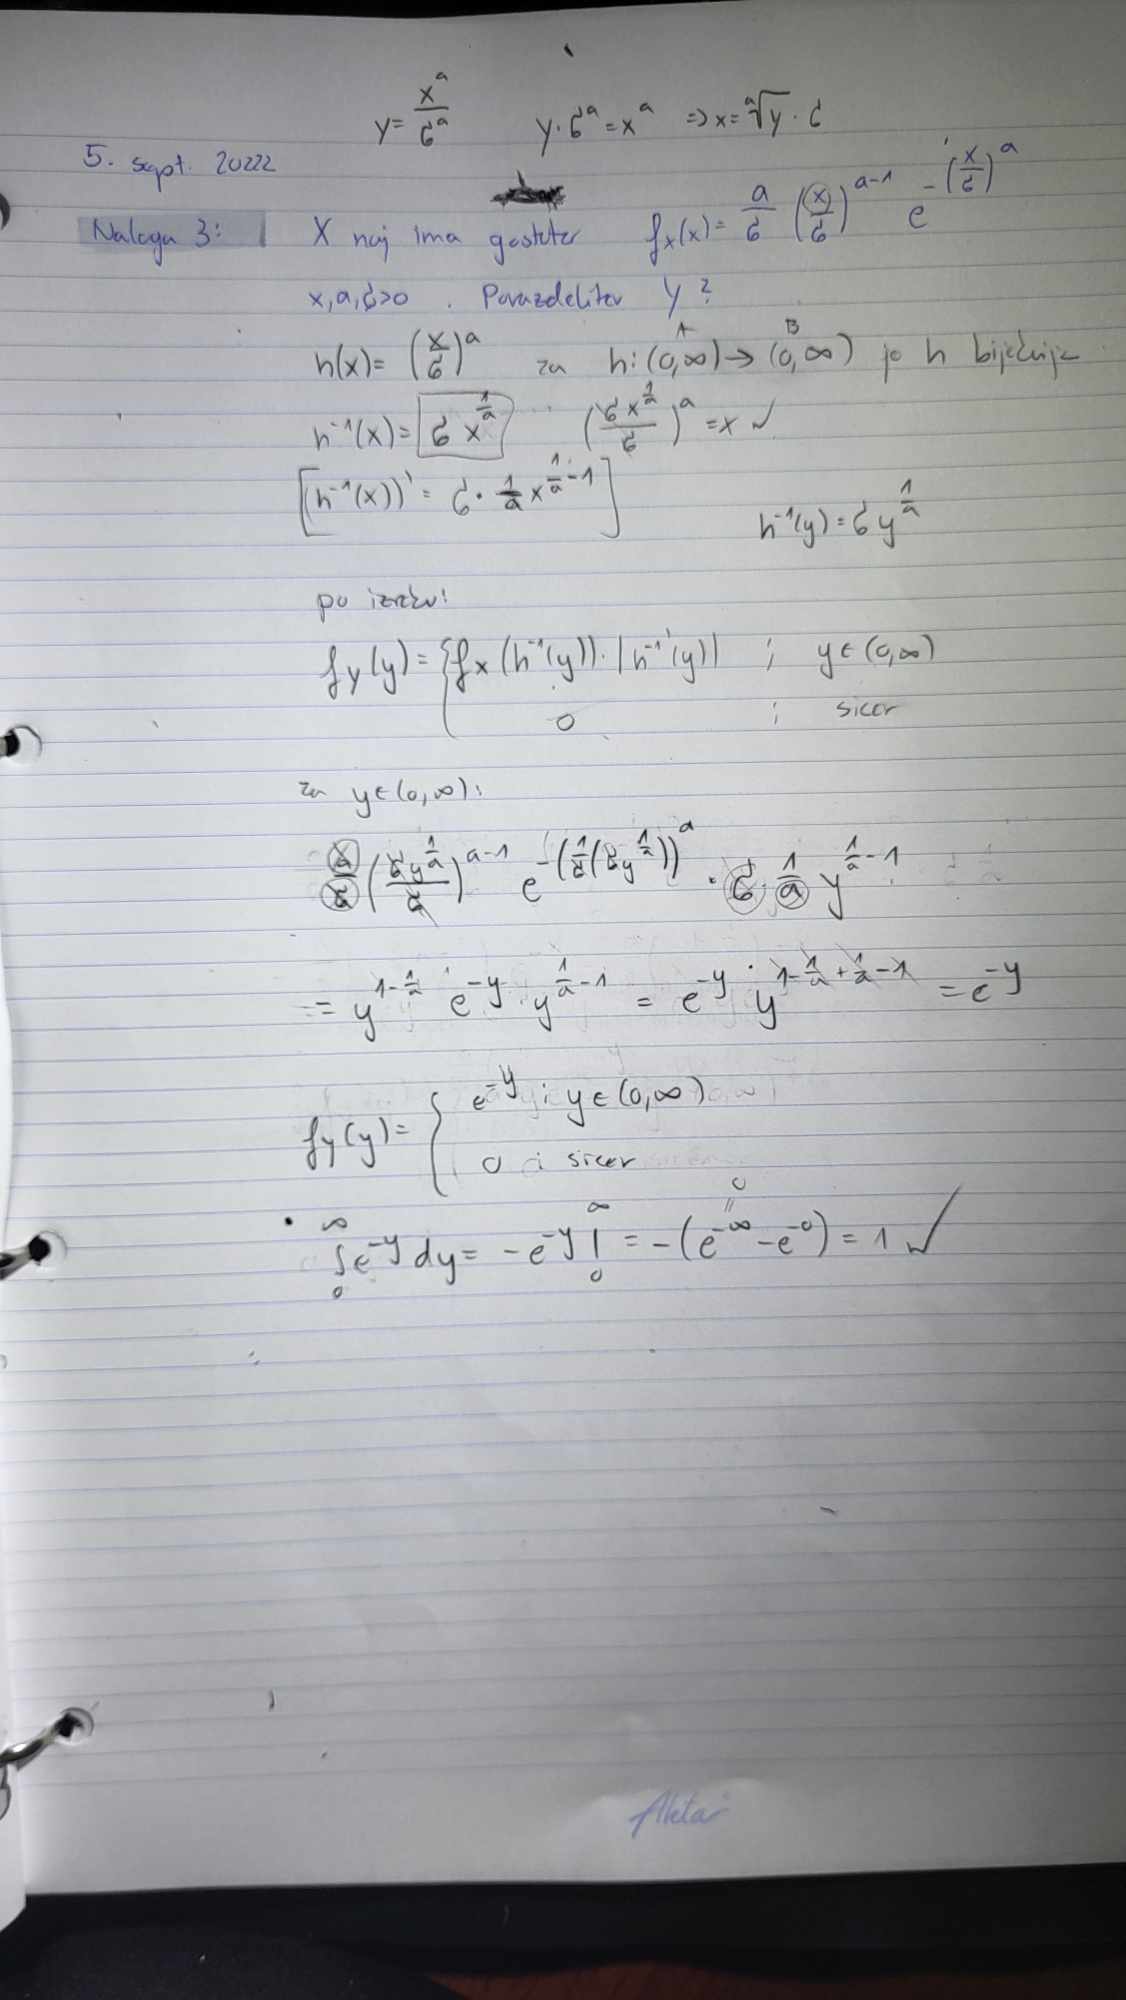 y = x^a / σ^a   y·σ^a = x^a   => x = ᵃ√y · σ
5. sept. 20222
Naloga 3: X naj ima gostoto f_X(x) = a/σ (x/σ)^(a-1) e^(-(x/σ)^a)
x, a, σ > 0 . Porazdelitev Y?
h(x) = (x/σ)^a   za h: (0,∞) → (0,∞) je h bijekcija
A B
h^-1(x) = σ x^(1/a)   (σ x^(1/a) / σ)^a = x ✓
[(h^-1(x))' = σ · 1/a x^(1/a - 1)]
h^-1(y) = σ y^(1/a)
po izreku:
f_Y(y) = { f_X(h^-1(y)) · |h^-1'(y)| ; y ∈ (0,∞)
0 ; sicer
za y ∈ (0,∞):
a/σ (σ y^(1/a) / σ)^(a-1) e^(-(1/σ (σ y^(1/a)))^a) · σ · 1/a y^(1/a - 1)
= y^(1 - 1/a) e^-y y^(1/a - 1) = e^-y · y^(1 - 1/a + 1/a - 1) = e^-y
f_Y(y) = { e^-y ; y ∈ (0,∞)
0 ; sicer
• ∫_0^∞ e^-y dy = -e^-y |_0^∞ = -(e^-∞ - e^-0) = 1 ✓
0
=